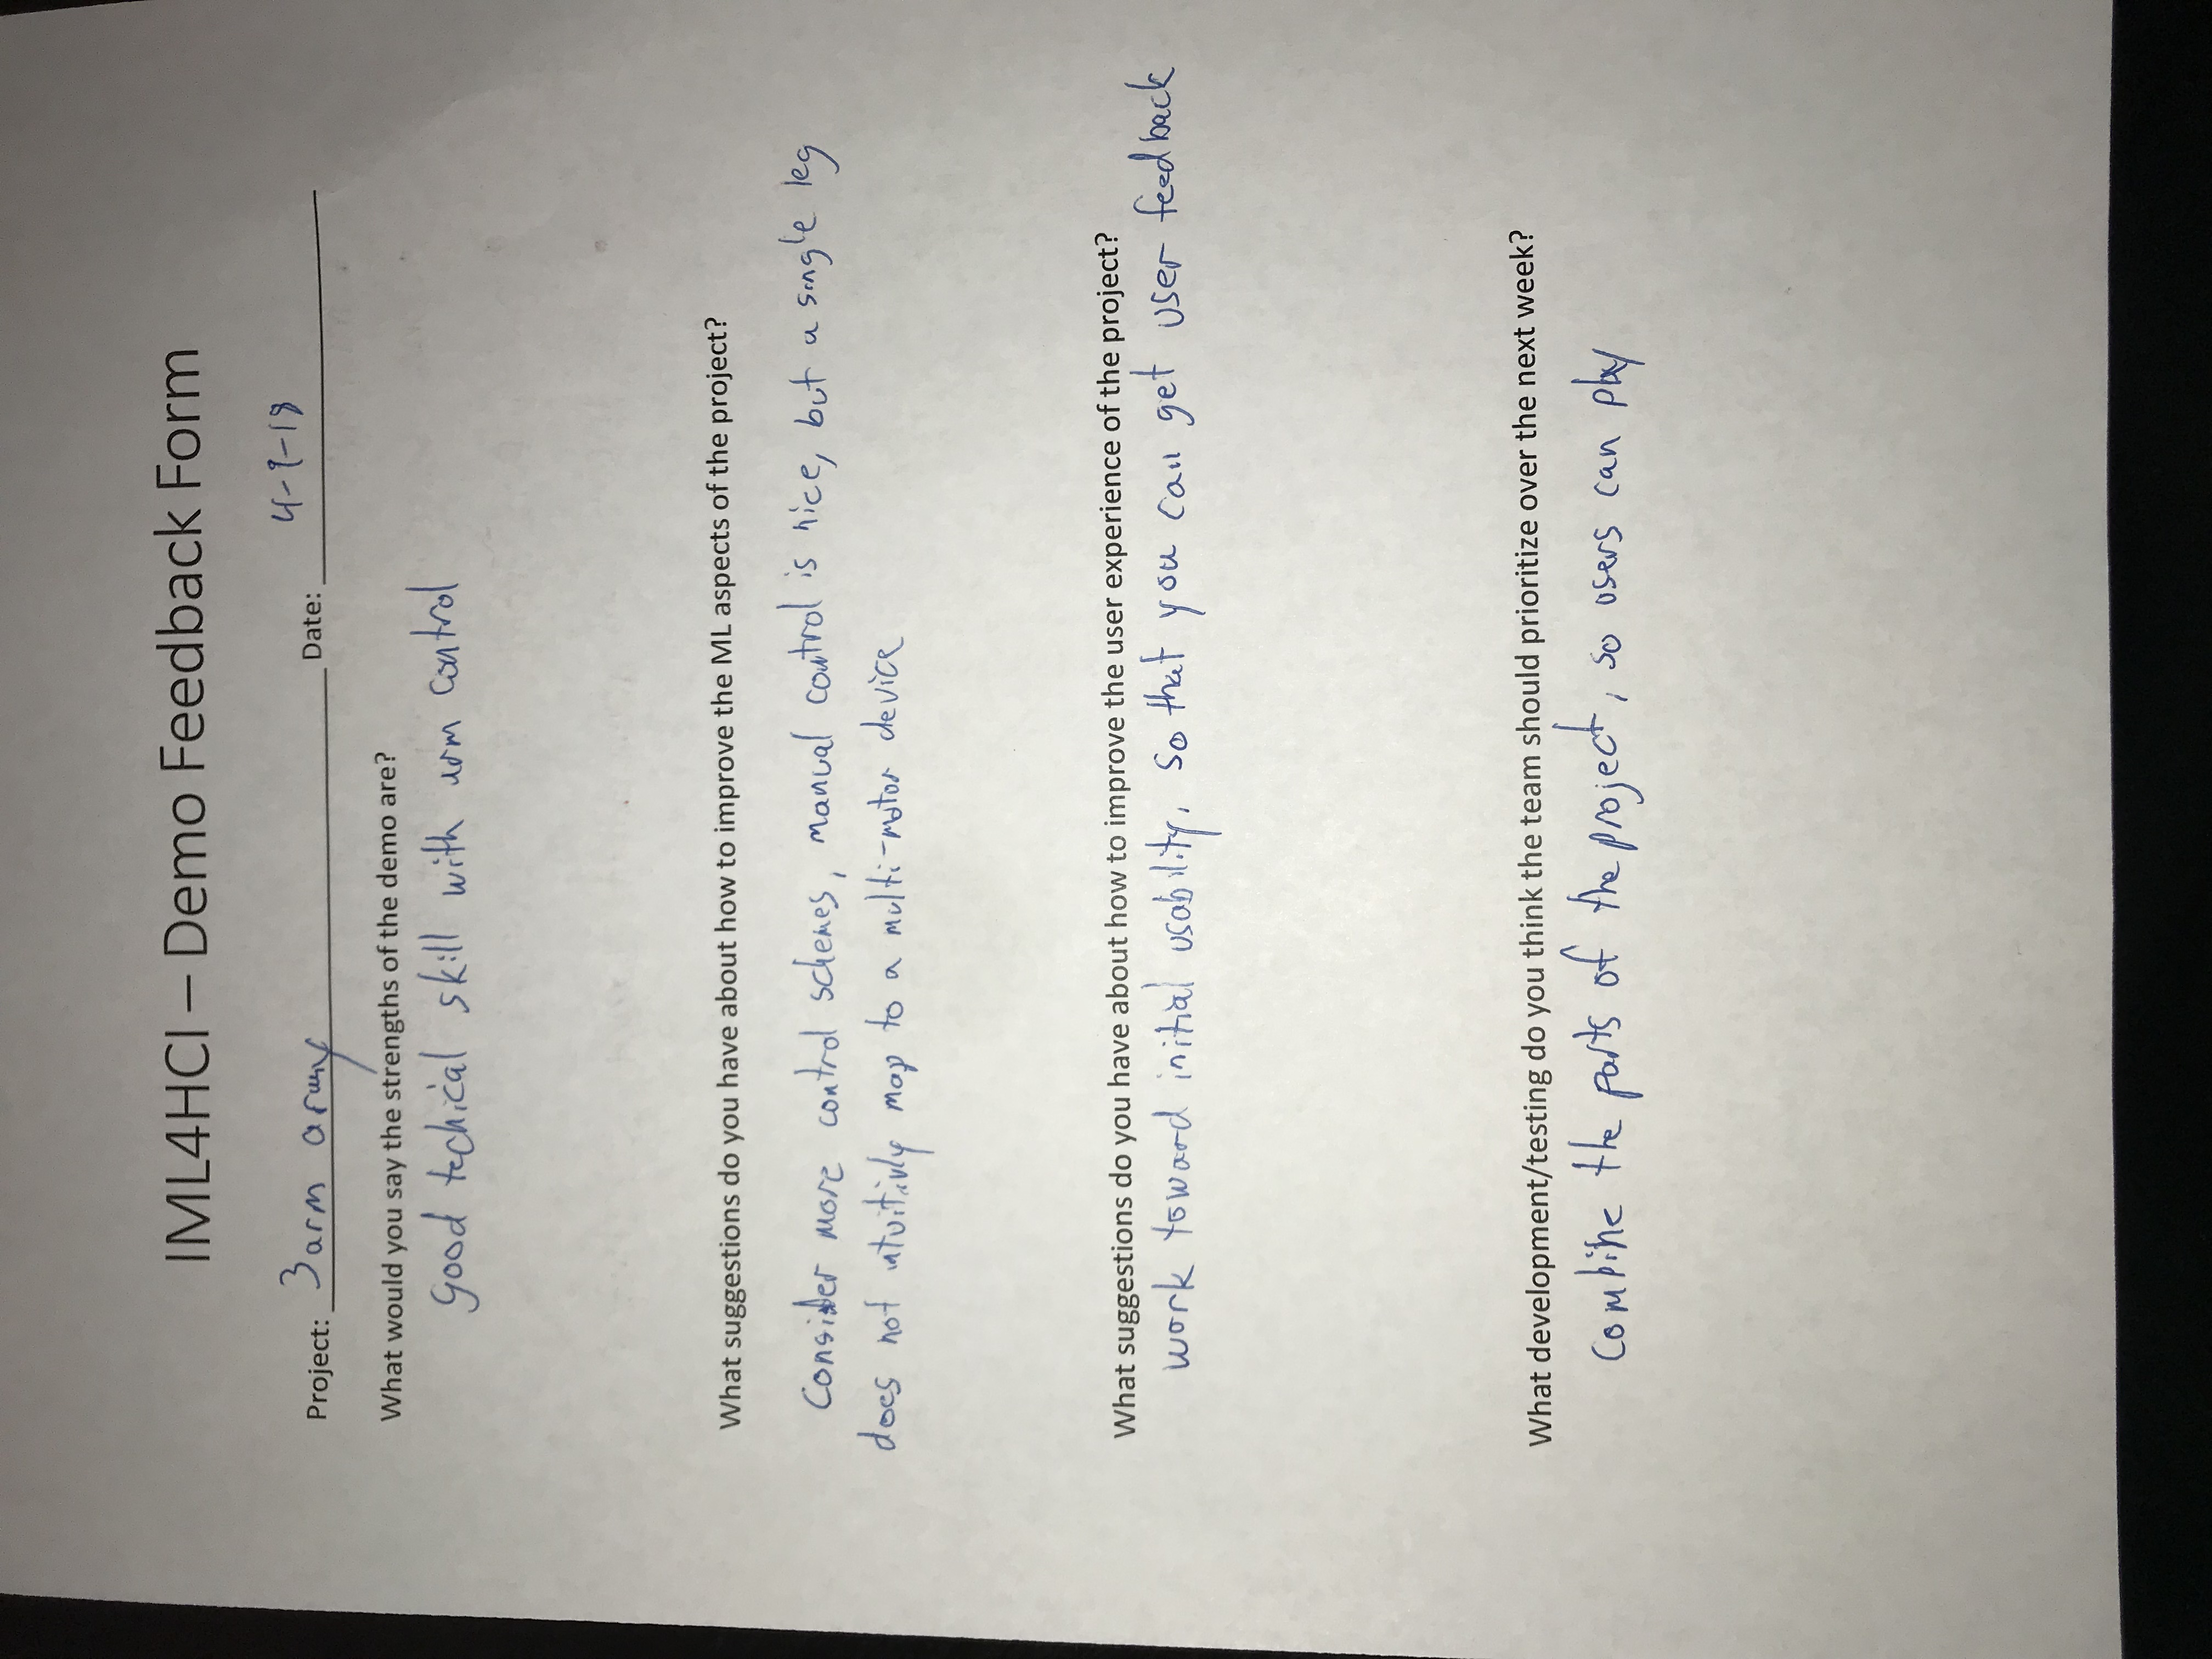 IML4HCI – Demo Feedback Form
Project: 3 arm army Date: 4-9-18
What would you say the strengths of the demo are?
Good techical skill with arm control
What suggestions do you have about how to improve the ML aspects of the project?
Consider more control schemes, manual control is nice, but a single leg
does not intuitivly map to a multi-motor device
What suggestions do you have about how to improve the user experience of the project?
work toward initial usability, so that you can get user feedback
What development/testing do you think the team should prioritize over the next week?
Combine the parts of the project, so users can play